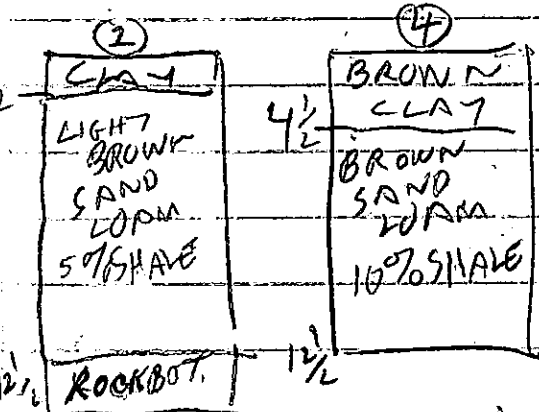 2
CLAY
LIGHT
BROWN
SAND
LOAM
5% SHALE
ROCK BOT.
4
BROWN
CLAY
4 1/2
BROWN
SAND
LOAM
10% SHALE
12 1/2